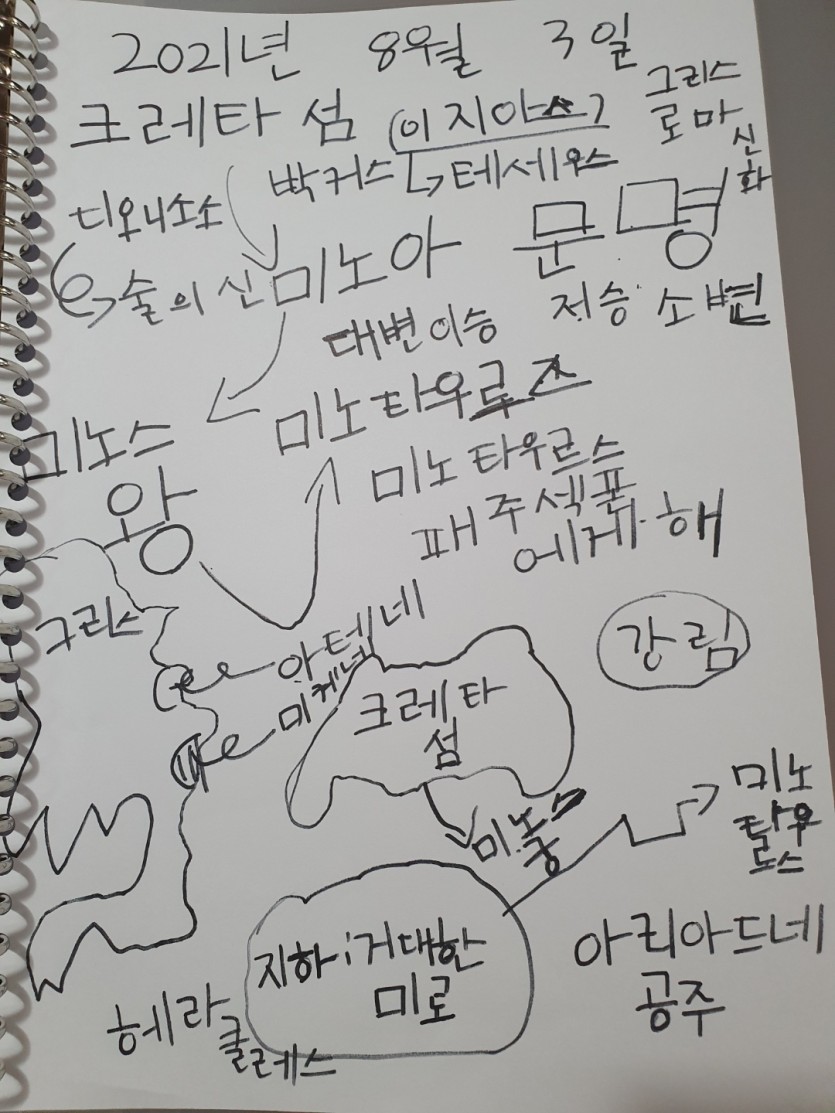 2021년 8월 3일
크레타 섬 (이지아스)
그리스
로마
신화
박커스 테세우스
디오니소소
술의 신
미노아 문명
대변이승 저승 소변
미노스
왕
미노타우르스
미노타우르스
패주섹풀
에게·해
그리스
아텐네
미케네
강림
크레타
섬
미노스
궁
미노
탈우
노스
지하;거대한
미로
아리아드네
공주
헤라
클레스